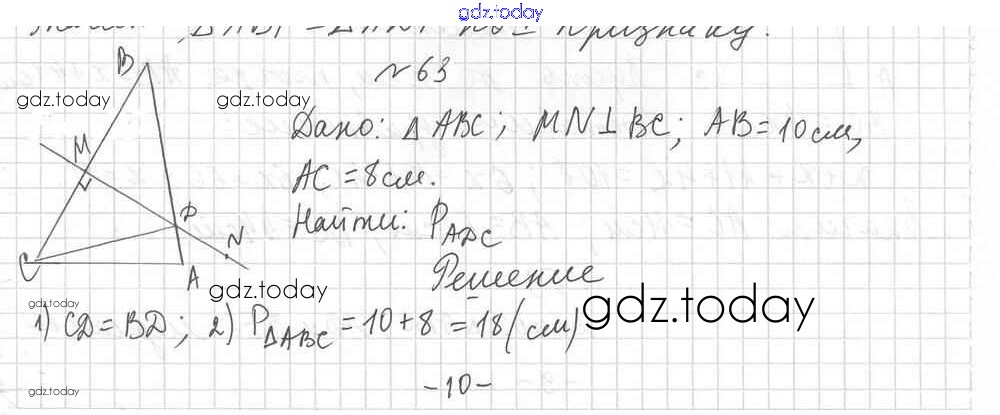 gdz.today
признаку.
B
№63
gdz.today
gdz.today
Дано: △ABC; MN⊥BC; AB=10см,
M
AC=8см.
Найти: P_ADC
D
N
C
A
Решение
gdz.today
gdz.today
gdz.today
1) CD=BD; 2) P_△ABC = 10+8 = 18 (см)
-10-
gdz.today